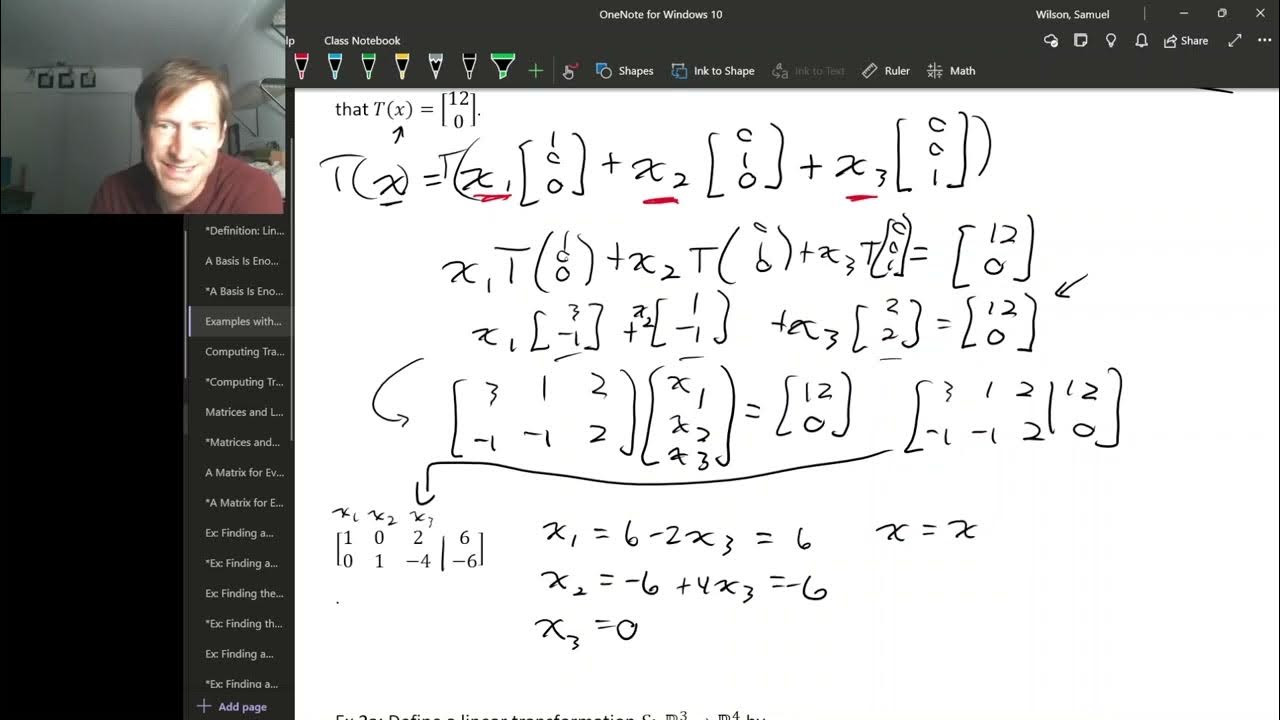 OneNote for Windows 10
Wilson, Samuel
lp Class Notebook
Shapes Ink to Shape Ink to Text Ruler Math
Share
*Definition: Lin...
A Basis Is Eno...
*A Basis Is Eno...
Examples with...
Computing Tra...
*Computing Tr...
Matrices and L...
*Matrices and...
A Matrix for Ev...
*A Matrix for E...
Ex: Finding a...
*Ex: Finding a...
Ex: Finding the...
*Ex: Finding th...
Ex: Finding a...
*Ex: Finding a...
+ Add page
that T(x) = [12 0].
T(x) = T(x₁ [1 0 0] + x₂ [0 1 0] + x₃ [0 0 1])
x₁ T(1 0 0) + x₂ T(0 1 0) + x₃ T[0 0 1] = [12 0]
x₁ [3 -1] + x₂ [1 -1] + x₃ [2 2] = [12 0]
[3 1 2 -1 -1 2] [x₁ x₂ x₃] = [12 0] [3 1 2 | 12 -1 -1 2 | 0]
x₁ x₂ x₃
[1 0 2 | 6 0 1 −4 | −6]
.
x₁ = 6 - 2x₃ = 6 x = x
x₂ = -6 + 4x₃ = -6
x₃ = 0
Ex 2a: Define a linear transformation S: ℝ³ → ℝ⁴ by